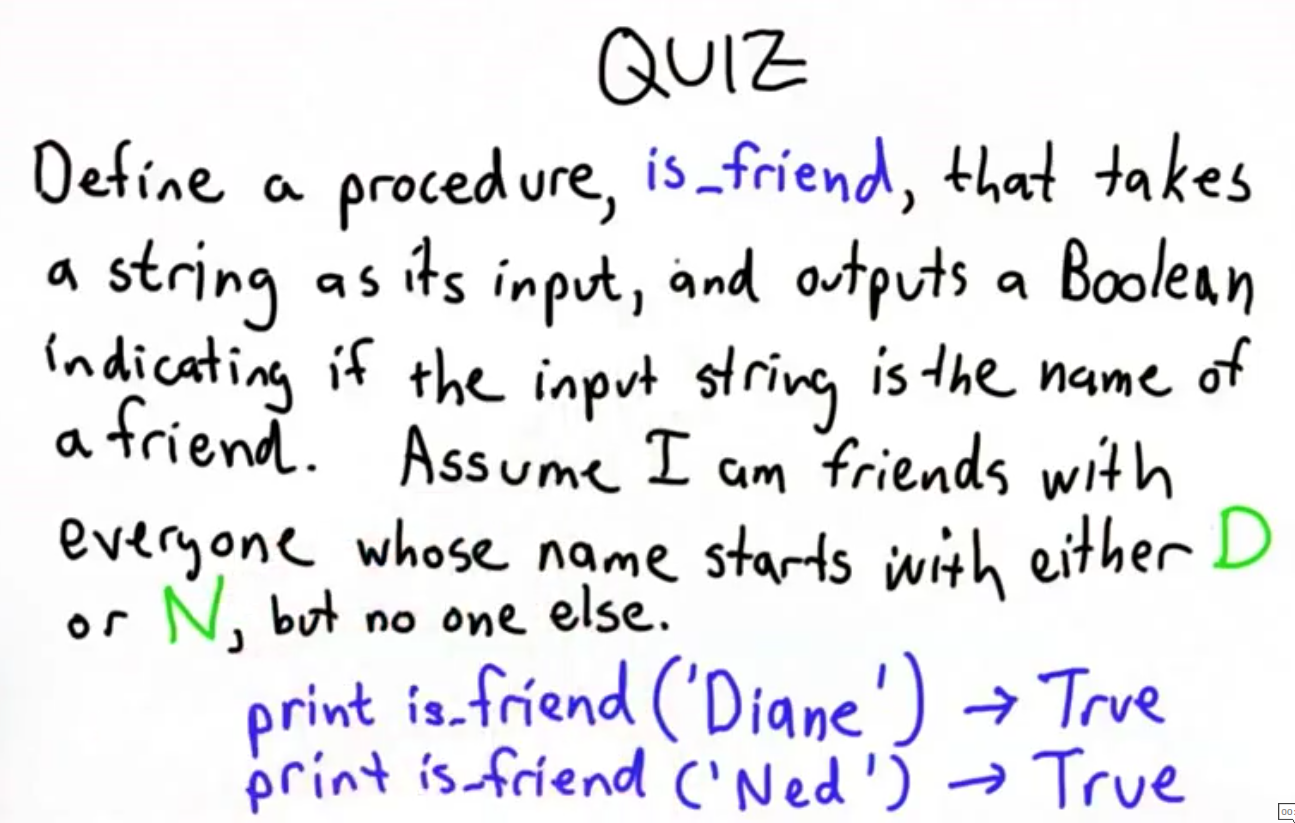 QUIZ
Define a procedure, is_friend, that takes
a string as its input, and outputs a Boolean
indicating if the input string is the name of
a friend. Assume I am friends with
everyone whose name starts with either D
or N, but no one else.
print is_friend ('Diane') → True
print is_friend ('Ned') → True
00: